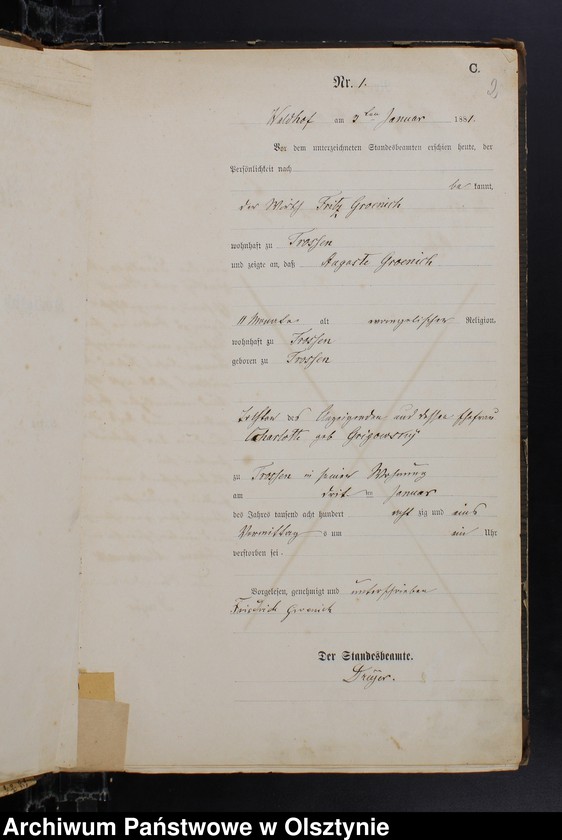 C.
2
Nr. 1.
Weldhof am 3ten Januar 1881.
Vor dem unterzeichneten Standesbeamten erschien heute, der
Persönlichkeit nach
be kannt,
der Wirth Fritz Groenick
wohnhaft zu Trossen
und zeigte an, daß Auguste Groenick
11 Monate alt evangelischer Religion,
wohnhaft zu Trossen
geboren zu Trossen
Tochter des Anzeigenden und dessen Ehefrau
Charlotte geb Grigowsky
zu Trossen in seiner Wohnung
am drit ten Januar
des Jahres tausend acht hundert acht zig und eins
Vormittag s um ein Uhr
verstorben sei.
Vorgelesen, genehmigt und unterschrieben
Friedrich Groenick
Der Standesbeamte.
Dreyer.
Archiwum Państwowe w Olsztynie